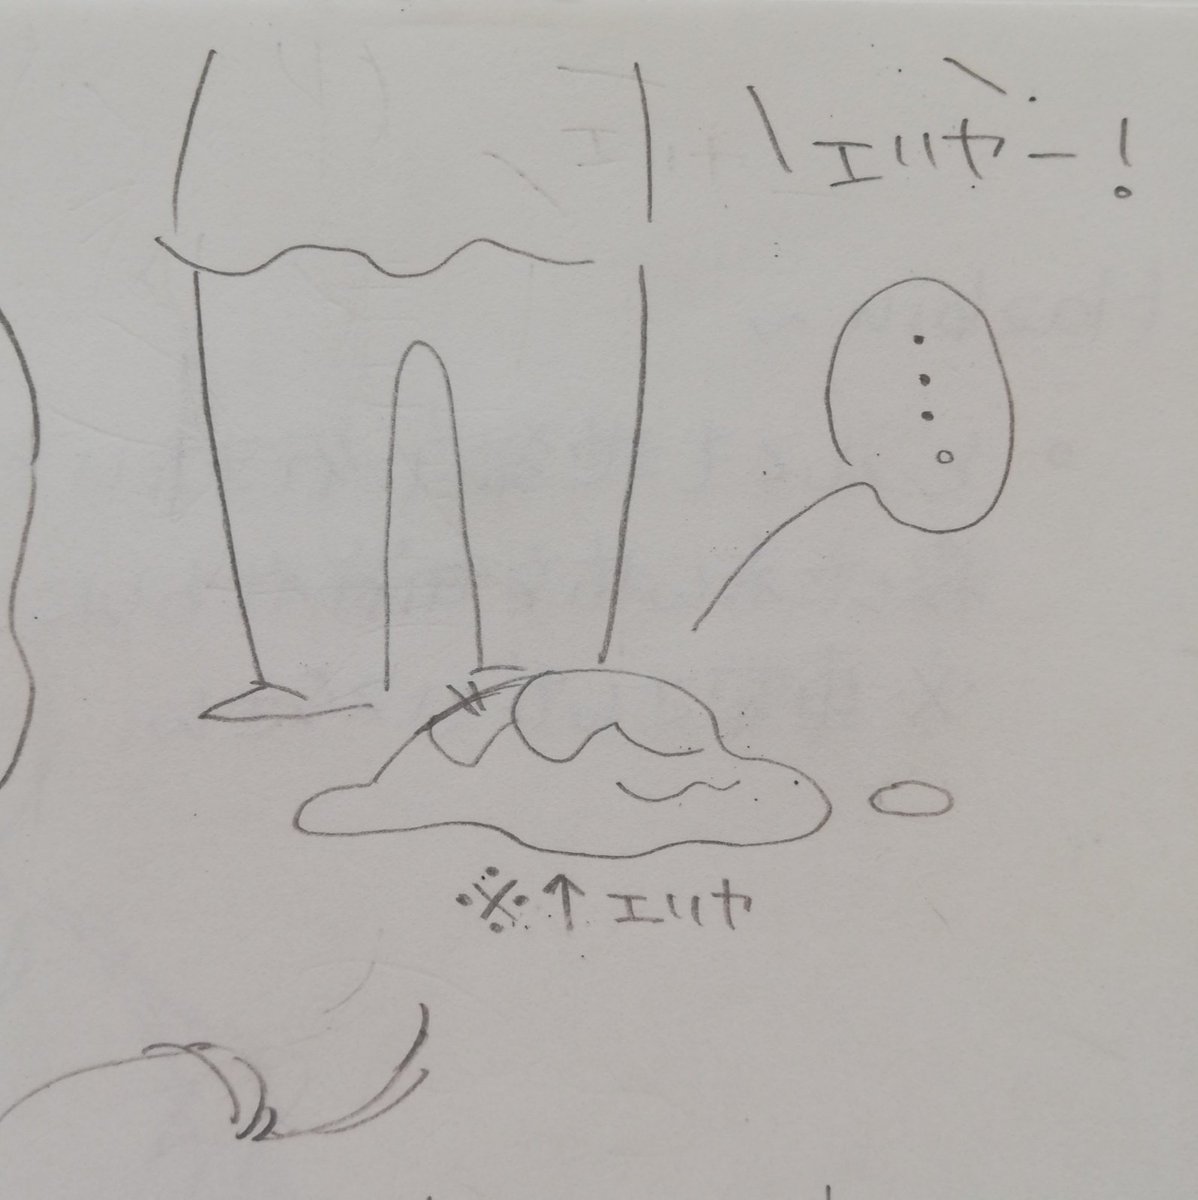 エリヤー!
・・・。
※↑エリヤ